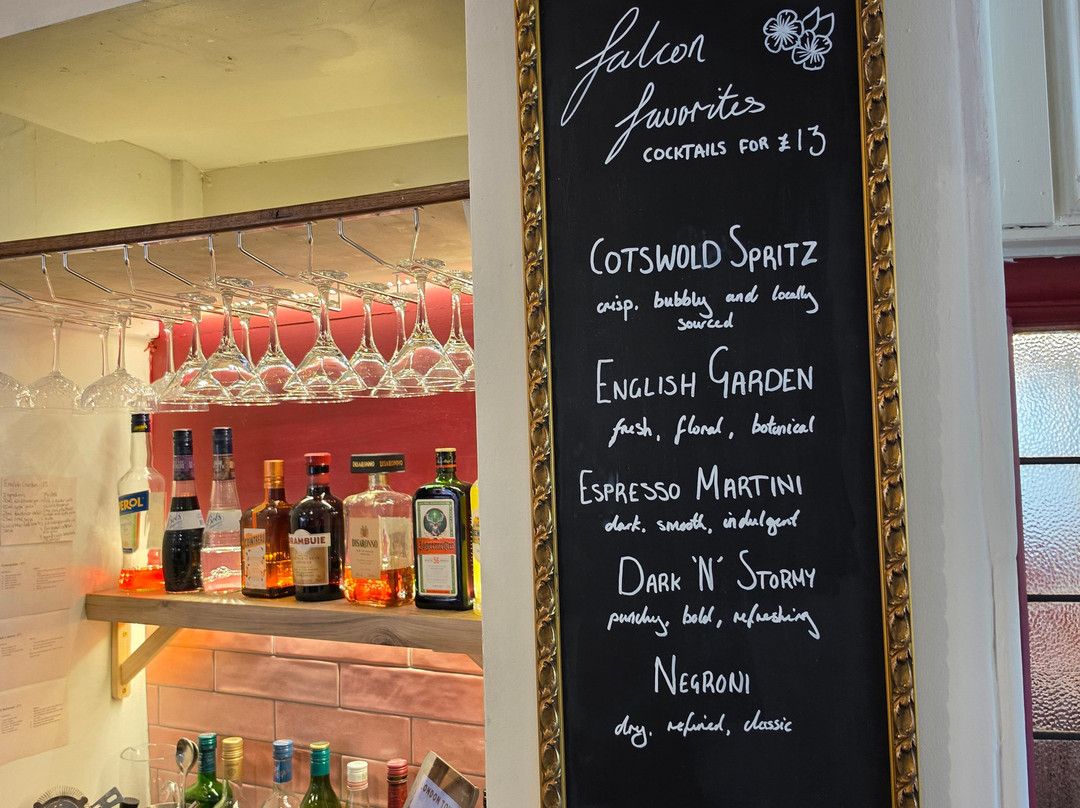 falcon
favorites
COCKTAILS FOR £13
COTSWOLD SPRITZ
crisp, bubbly and locally
sourced
ENGLISH GARDEN
fresh, floral, botanical
ESPRESSO MARTINI
dark, smooth, indulgent
DARK 'N' STORMY
punchy, bold, refreshing
NEGRONI
dry, refined, classic
EROL
RAMBUIE
DISARONNO DISARONNO
DISARONNO